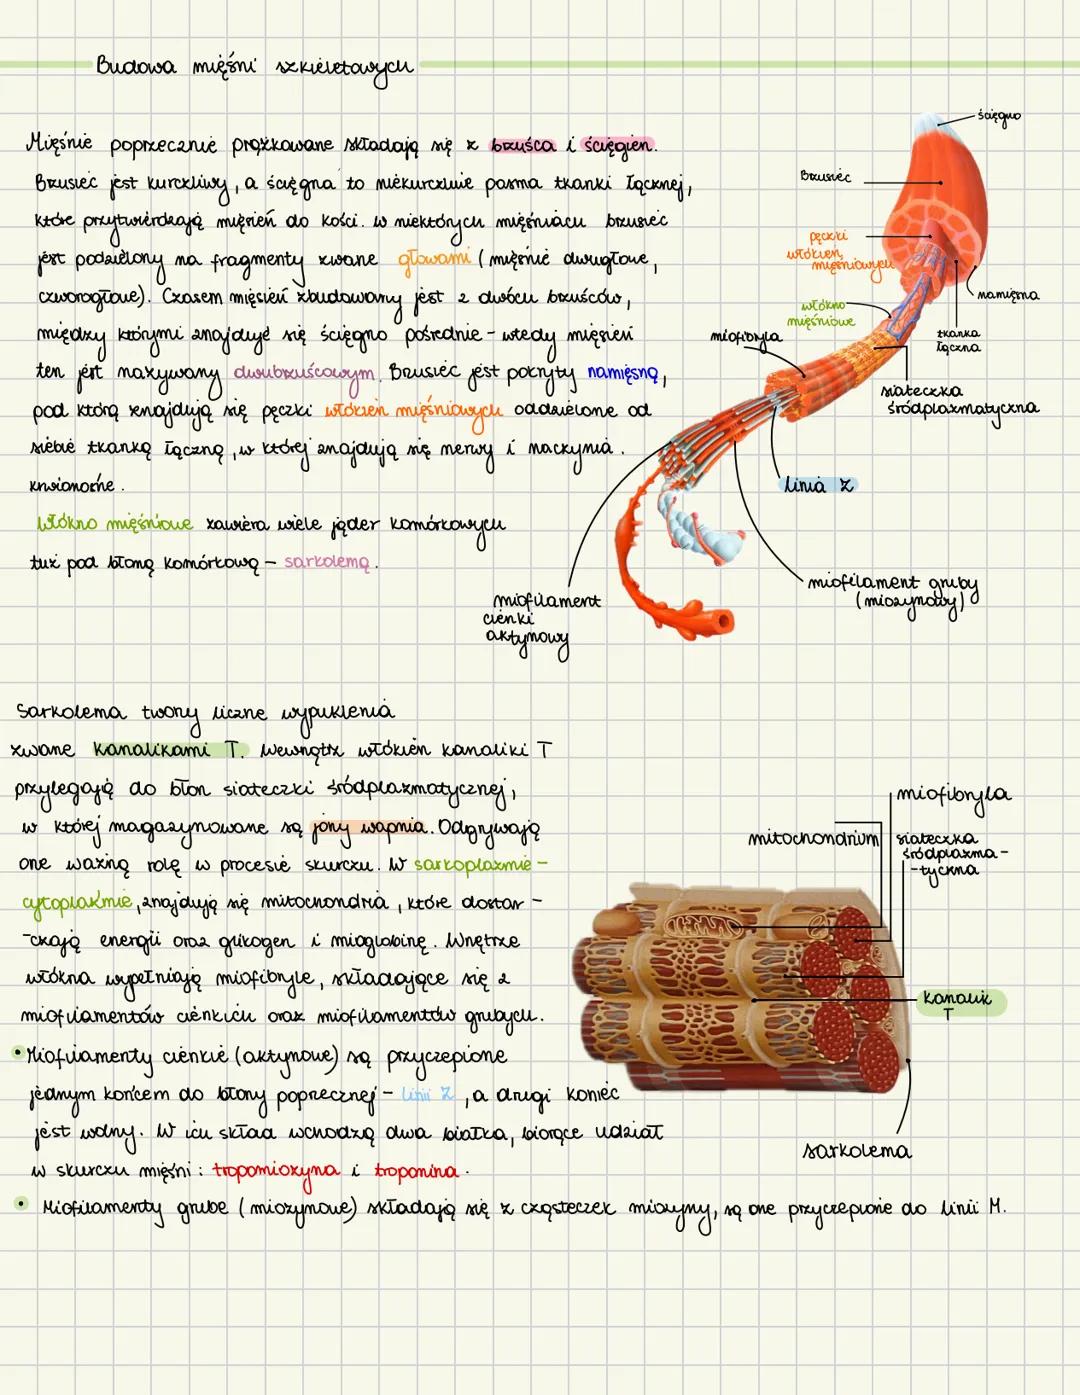 Budowa mięśni szkieletowych
Mięśnie poprzecznie prążkowane składają się z brzuśca i ścięgien.
Brzusiec jest kurczliwy, a ścięgna to niekurczliwe pasma tkanki łącznej,
które przytwierdzają mięsień do kości. w niektórych mięśniach brzusiec
jest podzielony na fragmenty zwane głowami (mięśnie dwugłowe,
czworogłowe). Czasem mięsień zbudowany jest z dwóch brzuśców,
między którymi znajduje się ścięgno pośrednie - wtedy mięsień
ten jest nazywany dwubrzuścowym. Brzusiec jest pokryty namięsną,
pod którą znajdują się pęczki włókien mięśniowych oddzielone od
siebie tkanką łączną, w której znajdują się nerwy i naczynia
krwionośne.
włókno mięśniowe zawiera wiele jąder komórkowych
tuż pod błoną komórkową - sarkolemą.
ścięgno
Brzusiec
pęczki
włókien
mięśniowych
namięsna
włókno
mięśniowe
tkanka
łączna
miofibryla
siateczka
śródplazmatyczna
linia Z
miofilament gruby
(miozynowy)
miofilament
cienki
aktynowy
Sarkolema tworzy liczne wypuklenia
zwane kanalikami T. Wewnątrz włókien kanaliki T
przylegają do błon siateczki śródplazmatycznej,
w której magazynowane są jony wapnia. Odgrywają
one ważną rolę w procesie skurczu. W sarkoplazmie -
cytoplazmie, znajdują się mitochondria, które dostar -
-czają energii oraz glikogen i mioglobinę. Wnętrze
włókna wypełniają miofibryle, składające się z
miofilamentów cienkich oraz miofilamentów grubych.
• Miofilamenty cienkie (aktynowe) są przyczepione
jednym końcem do błony poprzecznej - linii Z, a drugi koniec
jest wolny. W ich skład wchodzą dwa białka, biorące udział
w skurczu mięśni: tropomiozyna i troponina.
• Miofilamenty grube (miozynowe) składają się z cząsteczek miozyny, są one przyczepione do linii M.
miofibryla
mitochondrium
siateczka
śródplazma-
-tyczna
kanalik
T
sarkolema